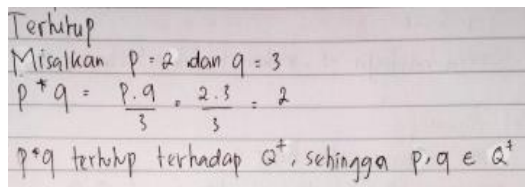 Tertutup
Misalkan p = 2 dan q = 3
p * q = p.q/3 = 2.3/3 = 2
p*q tertutup terhadap Q⁺, sehingga p,q ∈ Q⁺